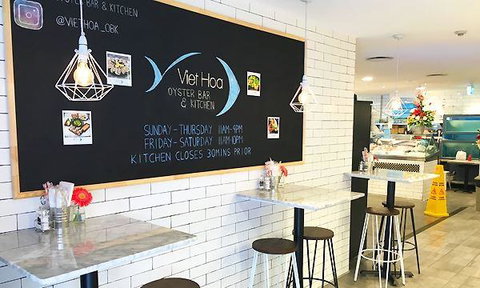 OYSTER BAR & KITCHEN
@VIETHOA_OBK
Viet Hoa
OYSTER BAR
& KITCHEN
SUNDAY-THURSDAY 11AM-9PM
FRIDAY-SATURDAY 11AM-10PM
KITCHEN CLOSES 30MINS PRIOR